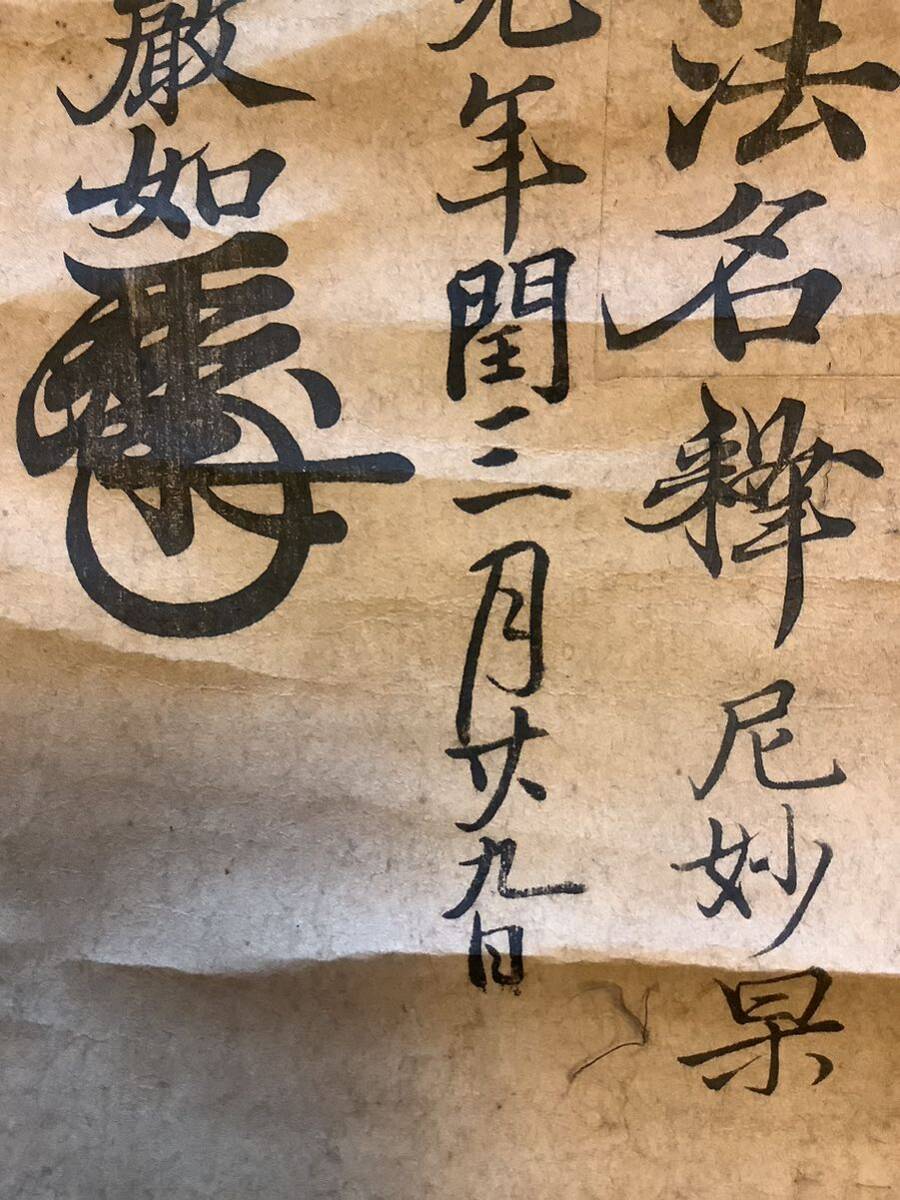 法名釋尼妙果
元年閏三月廿九日
嚴如